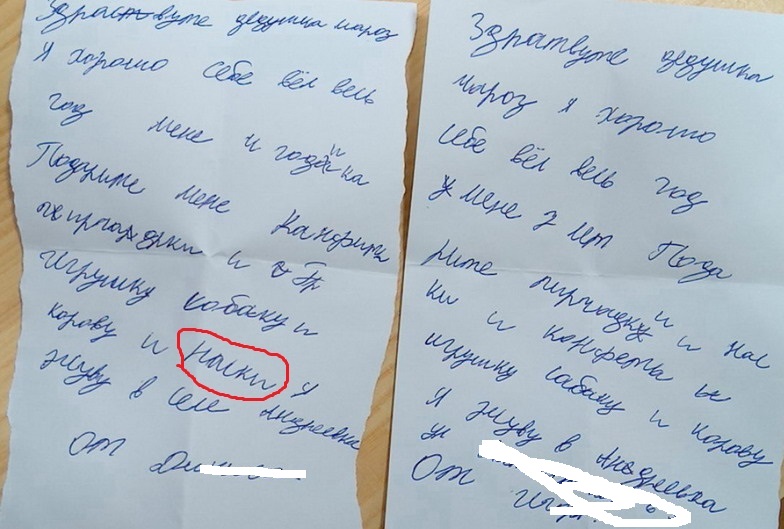 Здраствуте дедушка мароз
Я хорошо себе вёл весь
год мене и годика
Подарите мене Канфиты
и
игрушку собаку и
корову и наски Я
живу в селе Андреевка
от
Здратвуте дедушка
мароз я хорошо
себе вёл весь год
у мене 7 лет Пода
рите пирчадки и нас
ки и конфеты и
игрушку сабаку и корову
Я живу в Андреевка
От